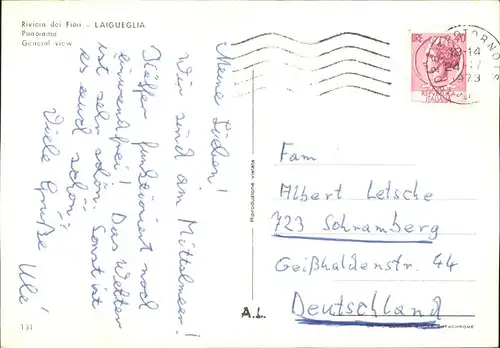 Riviera dei Fiori - LAIGUEGLIA
Panorama
General view
Meine Lieben!
Wir sind am Mittelmeer!
funktioniert noch
einwandfrei! Das Wetter
ist sehr schön. Sonst ist
es auch schön.
Viele Grüße Ule'
131
Riproduzione vietata
A.L.
LIRE 40
REPUBBLICA
ITALIANA
1973
Fam
Albert Letsche
723 Schramberg
Geißhaldenstr. 44
Deutschland